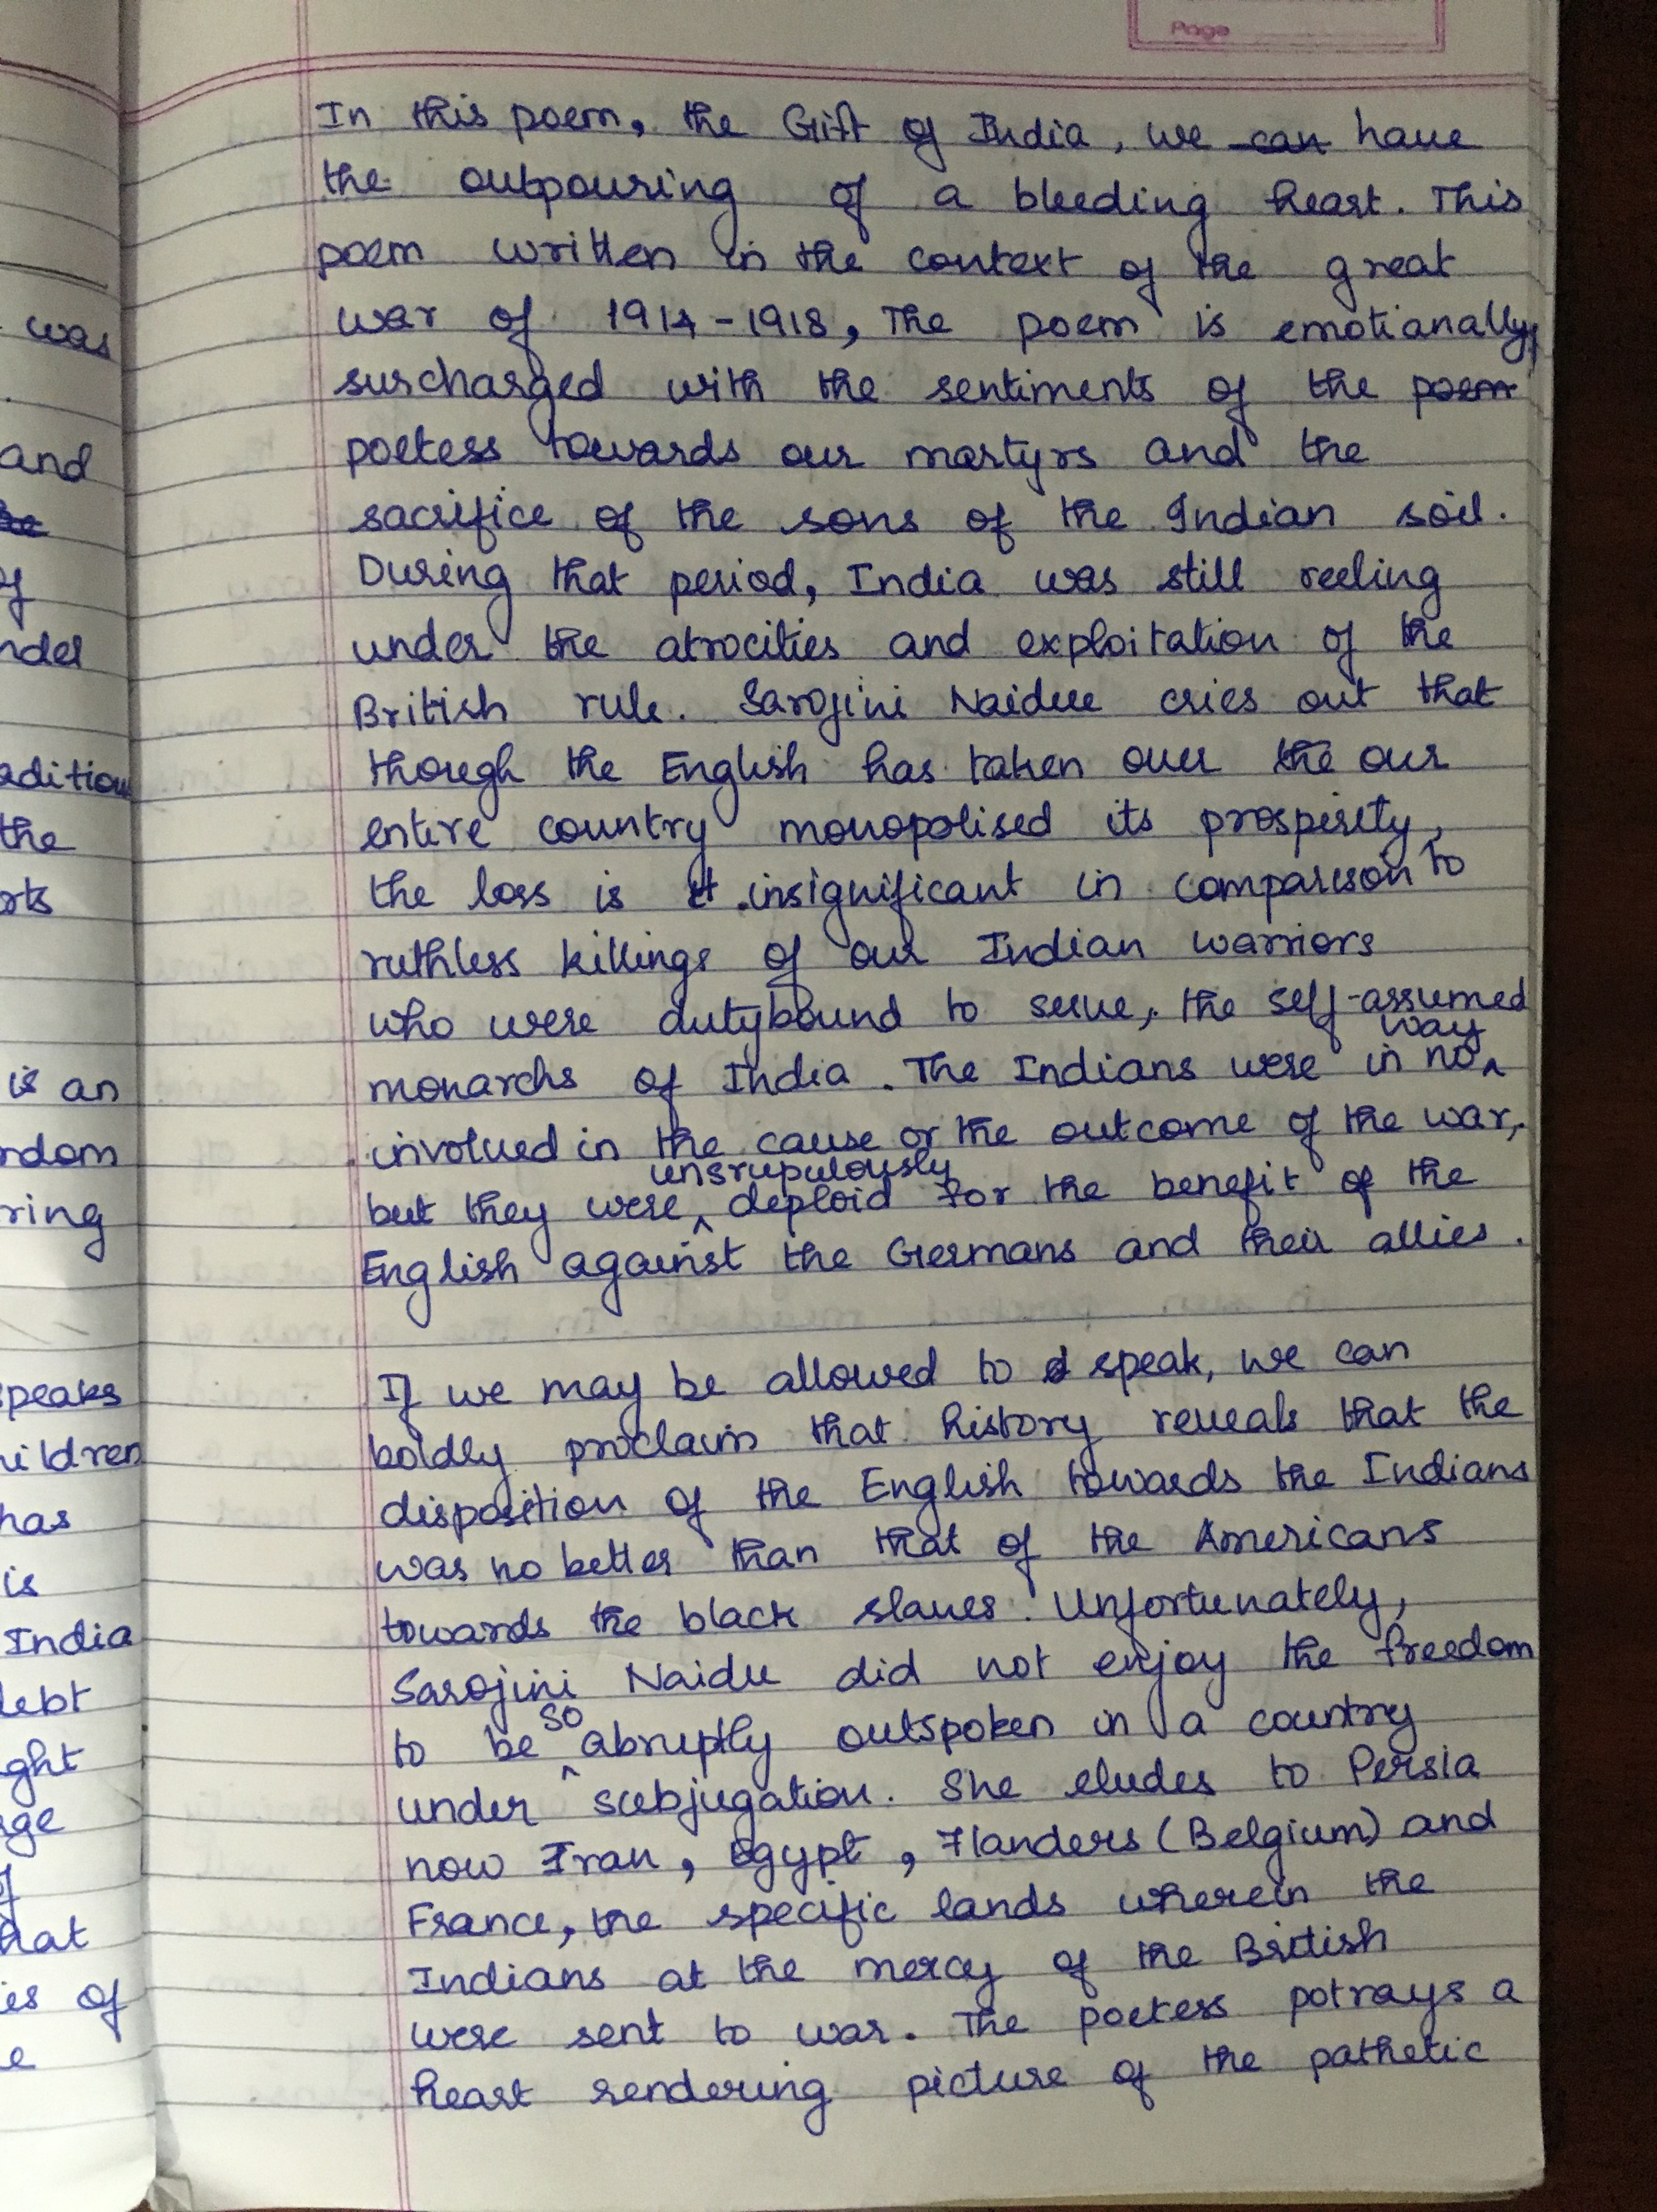 Page
In this poem, the Gift of India, we can have
the outpouring of a bleeding heart. This
poem written in the context of the great
war of 1914-1918, The poem is emotianally
surcharged with the sentiments of the poem
poetess towards our martyrs and the
sacrifice of the sons of the Indian soil.
During that period, India was still reeling
under the atrocities and exploitation of the
British rule. Sarojini Naidue cries out that
though the English has taken over the our
entire country monopolised its prosperity,
the loss is insignificant in comparison to
ruthless killings of our Indian warriors
who were dutybound to serve, the self-assumed
monarchs of India. The Indians were in no way
involved in the cause or the outcome of the war,
but they were unsrupulously deploid for the benefit of the
English against the Germans and their allies.
If we may be allowed to speak, we can
boldly proclaim that history reveals that the
disposition of the English towards the Indians
was no better than that of the Americans
towards the black slaves. Unfortunately,
Sarojini Naidu did not enjoy the freedom
to be so abruptly outspoken in a country
under subjugation. She eludes to Persia
now Iran, Egypt, Flanders (Belgium) and
France, the specific lands wherein the
Indians at the mercy of the British
were sent to war. The poetess potrays a
heart rendering picture of the pathetic
was
and
is an
ring
has
is
India
the